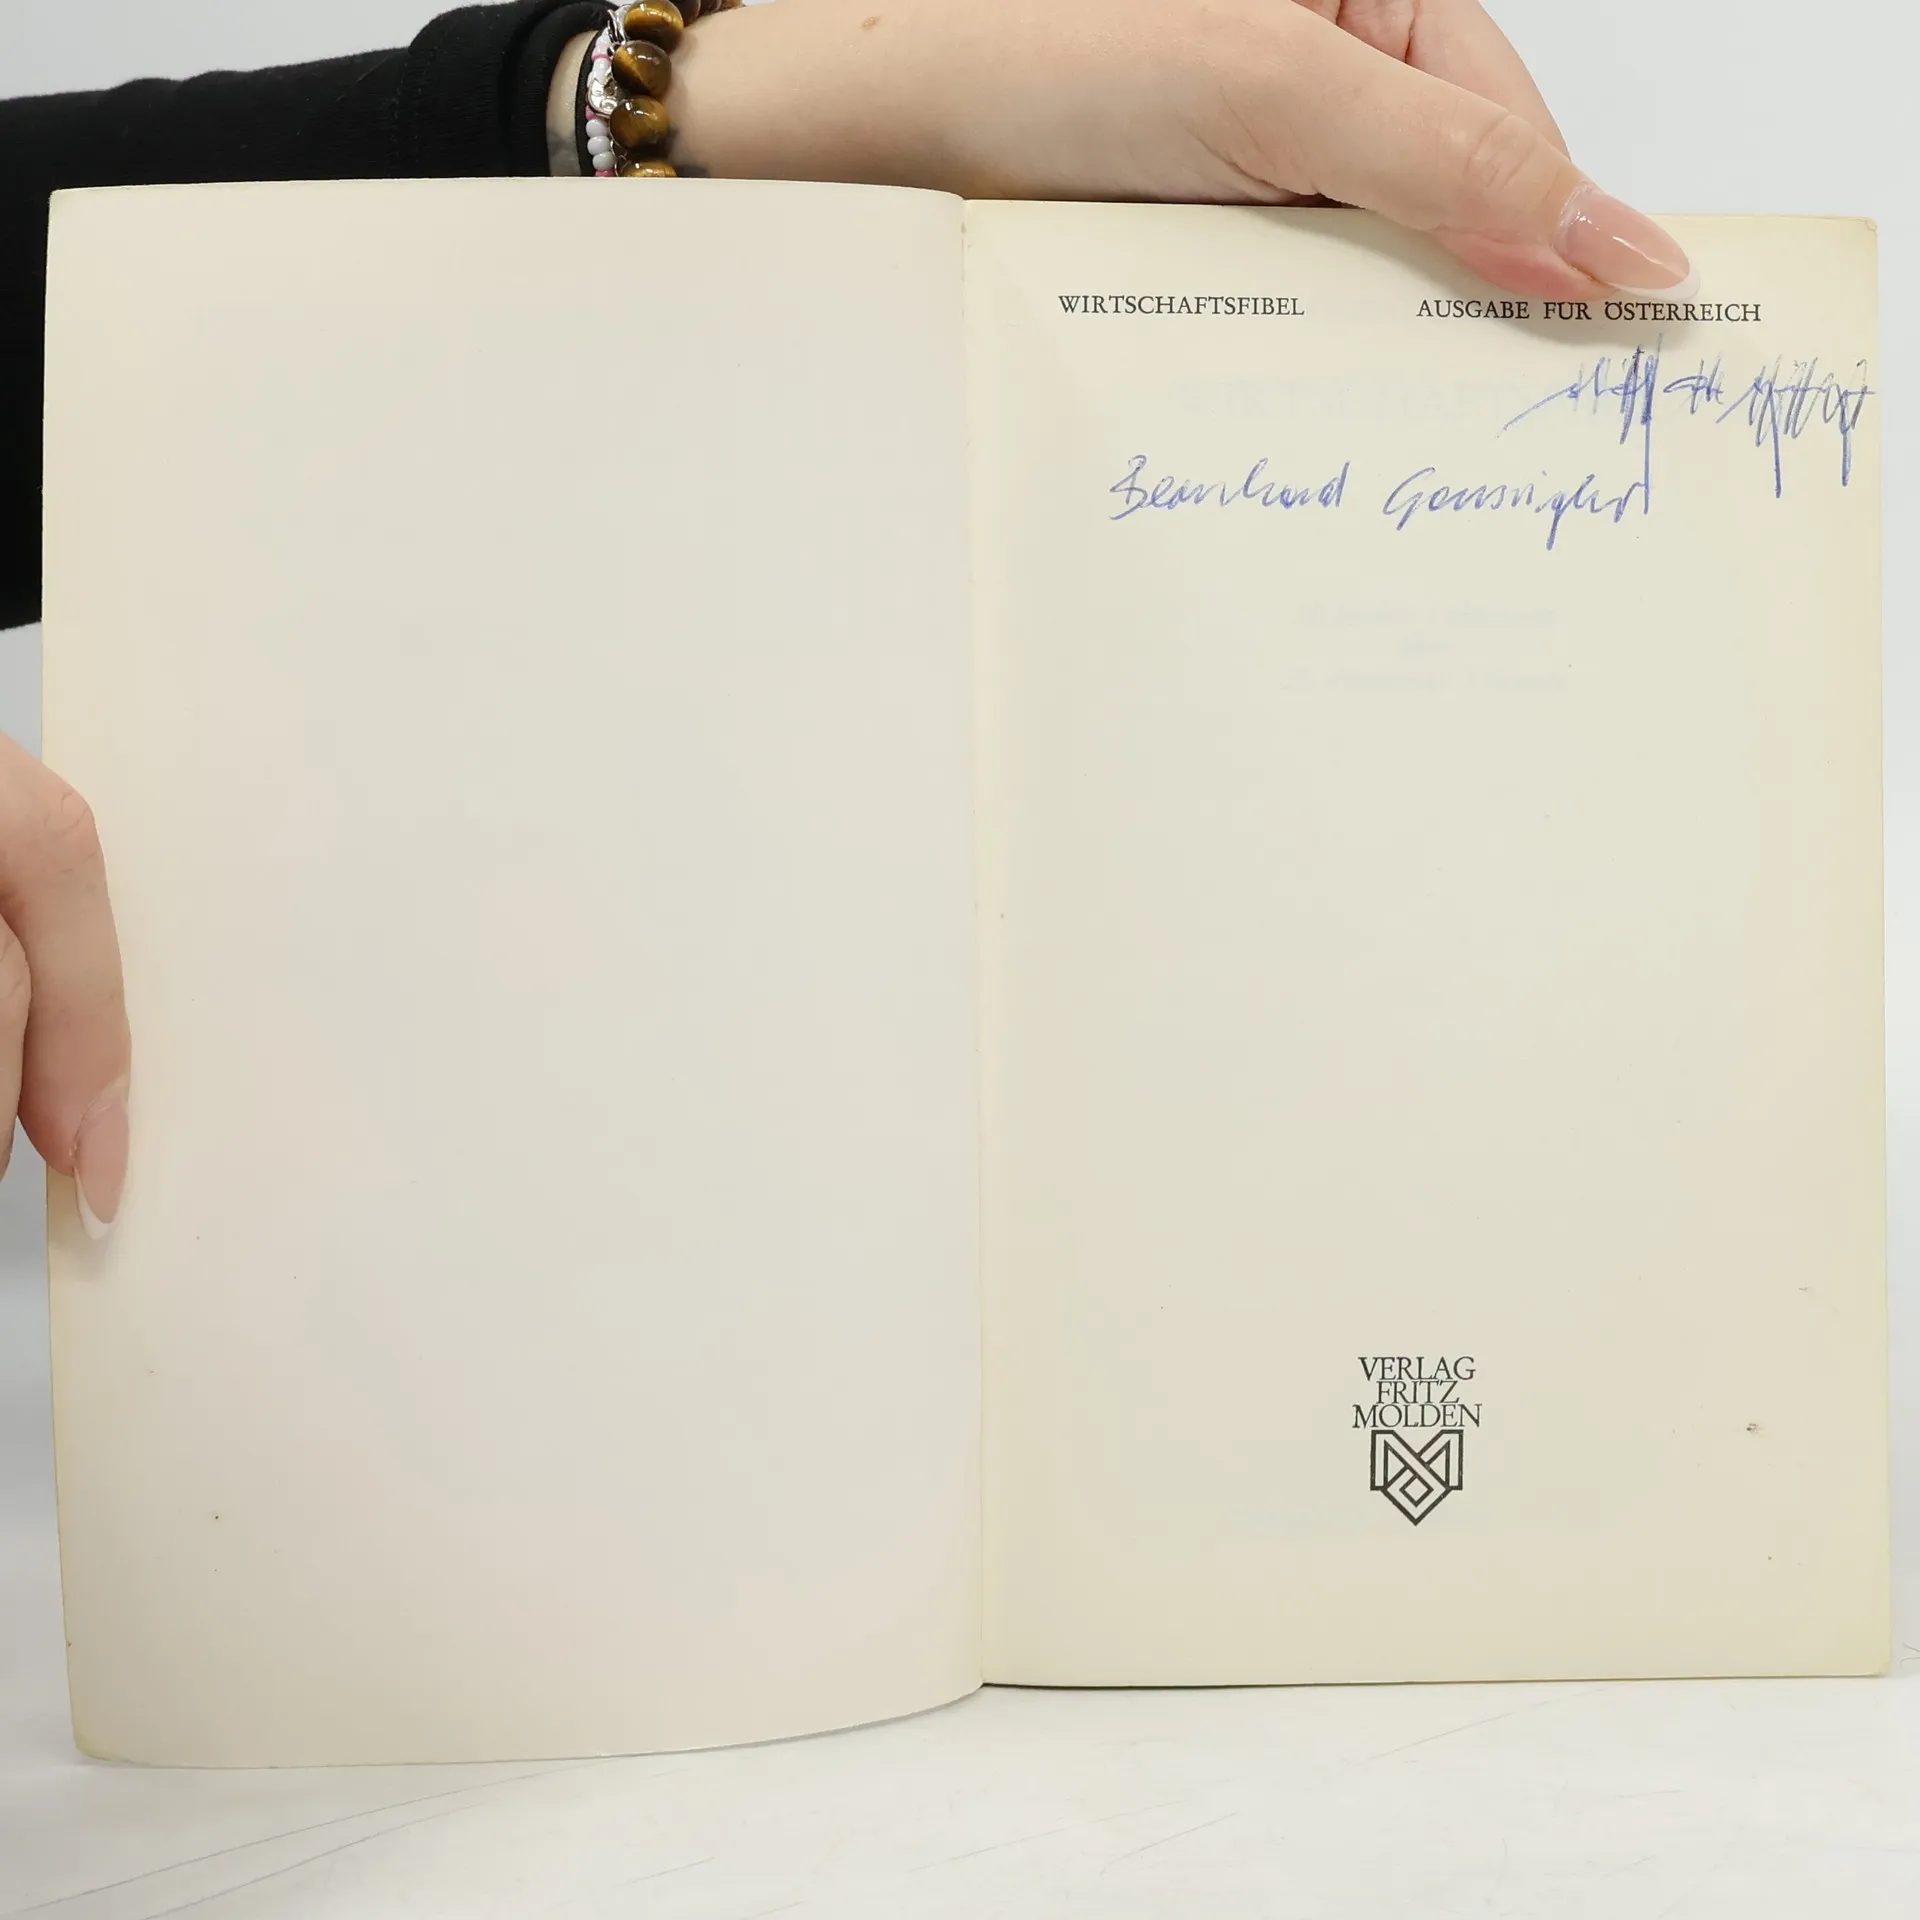 WIRTSCHAFTSFIBEL AUSGABE FÜR ÖSTERREICH
Bernhard
VERLAG
FRITZ
MOLDEN